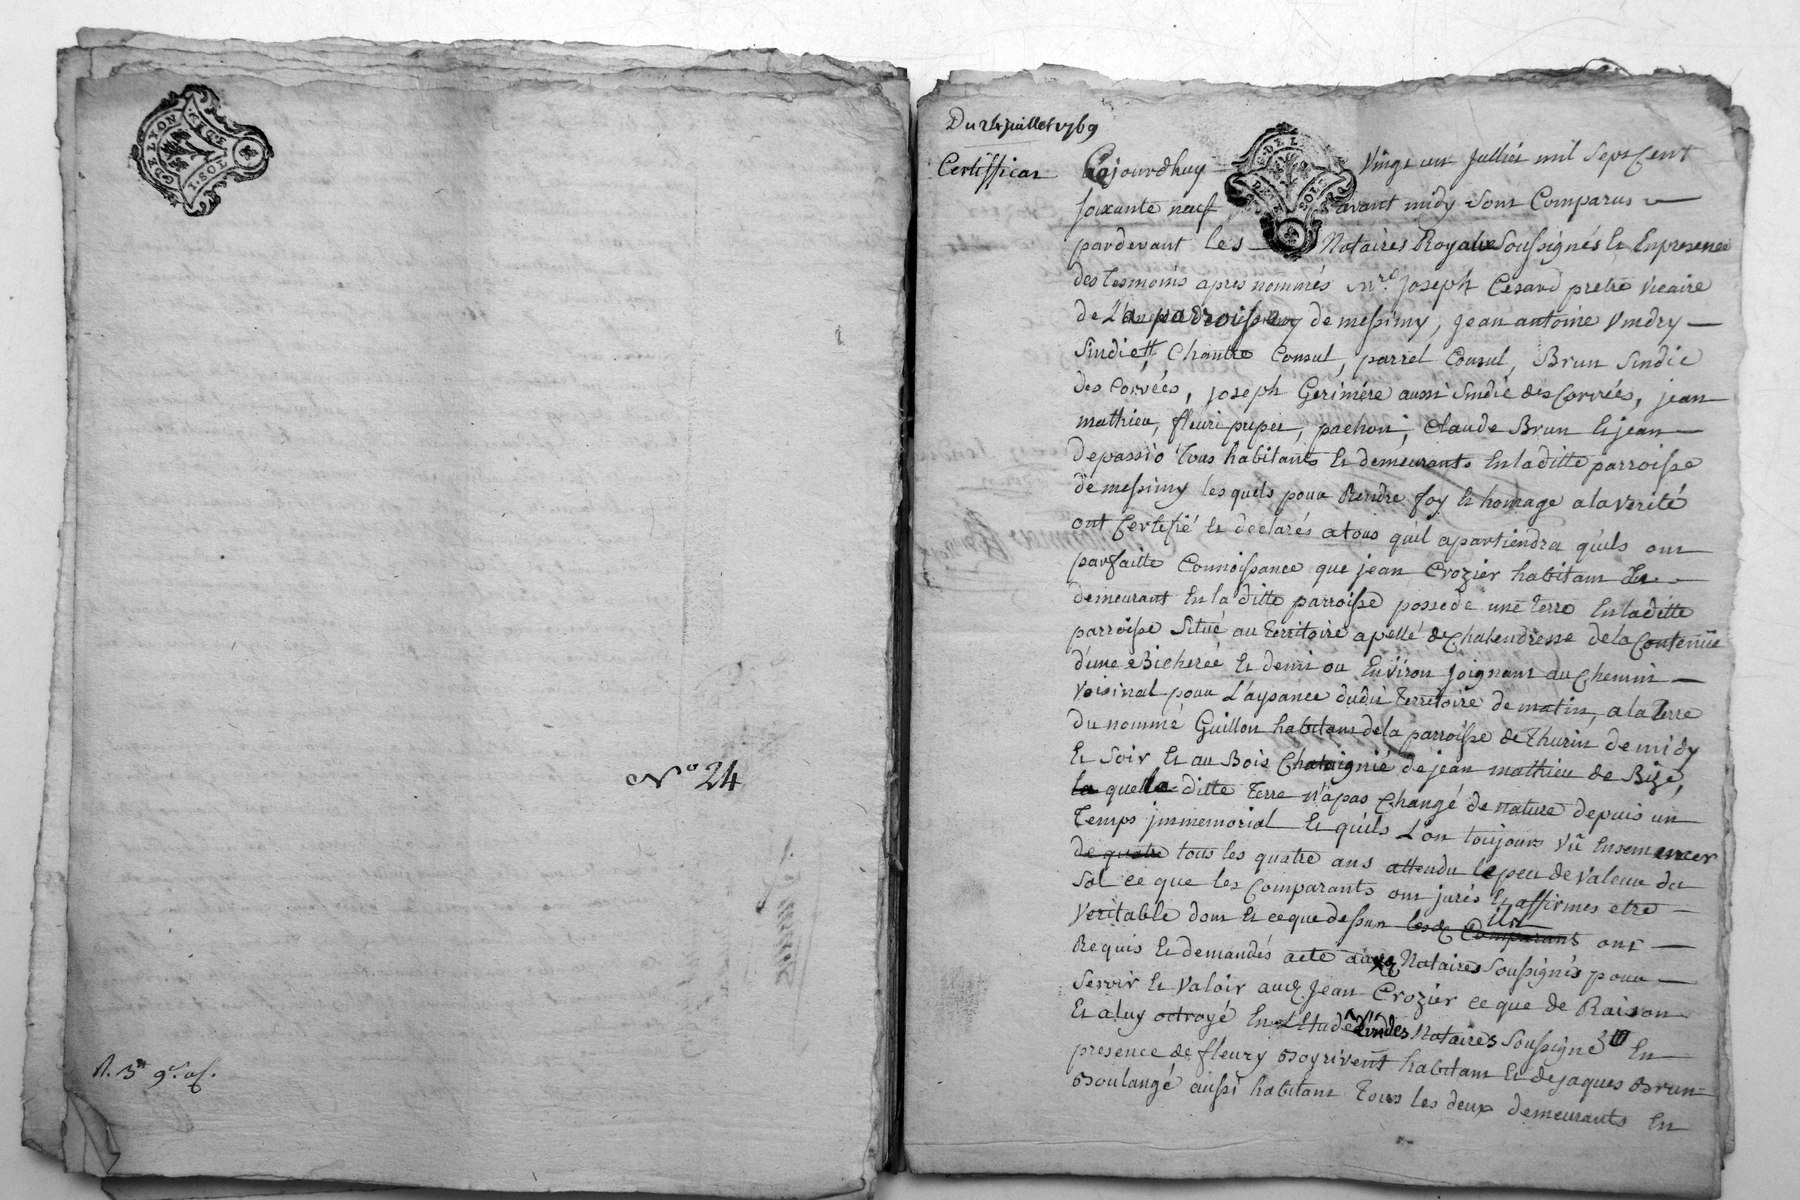 GEN. DE LYON
1. SOL
No 24
Du 24 juillet 1769
Certifficat
Aujourdhuy Vingt un Julliet mil Sept Cent
soixante neuf avant midy Sont Comparus
pardevant les Notaires Royaux Soussignés Et En presence
des tesmoins apres nommés Mre. Joseph Cesard pretre vicaire
de La parroisse de messimy, Jean antoine Vindry
Sindic, Chantre Consul, parret Consul, Brun Sindic
des Corvées, joseph Gerimére aussi Sindic des Corvées, jean
mathieu, fleuri pupier, pachon, Claude Brun Et jean
depassio Tous habitants Et demeurants En la ditte parroisse
de messimy lesquels pour Rendre foy Et homage a la verité
ont Certifié Et declarés atous quil apartiendra quils ont
parfaitte Connoissance que jean Crozier habitant Et
demeurant En la ditte parroisse possede une terre En la ditte
parroisse Situé au territoire apellé de Chalendresse de la Contenüe
d'une Bicherée Et demi ou Environ Joignant au Chemin
Voisinal pour L'aysance dudit Territoire de matin, a la Terre
du nommé Guillon habitant de la parroisse de Thurin de midy
Et Soir Et au Bois Chataignié de jean mathieu de Bize,
la quelle ditte Terre n'a pas Changé de nature depuis un
Temps jmmemorial Et quils L'on toujours Vû Ensemencer
de quatre tous les quatre ans attendu le peu de Valeur du
Sol ce que les Comparants ont jurés Et affirmes etre
Veritable dont Et ce que dessus lesd. Comparants ils ont
Requis Et demandés acte aux Notaires Soussignés pour
Servir Et Valoir aud. Jean Crozier ce que de Raison
Et a luy octroyé En L'Etude d'un des Notaires Soussigné En
presence de fleury Boyrivent habitant Et de jaques Brun
Boulangé aussi habitant Tous les deux demeurants En